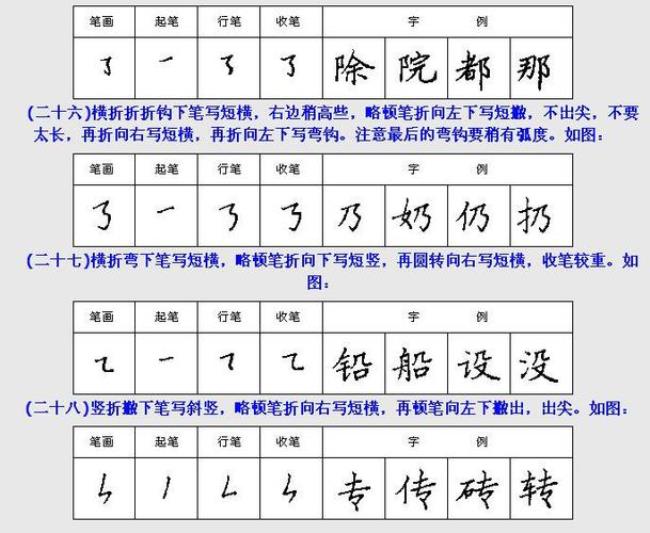 笔画 起笔 行笔 收笔 字 例
㇌ 一 ㇌ ㇌ 除 院 都 那
(二十六)横折折折钩下笔写短横，右边稍高些，略顿笔折向左下写短撇，不出尖，不要
太长，再折向右写短横，再折向左下写弯钩。注意最后的弯钩要稍有弧度。如图：
笔画 起笔 行笔 收笔 字 例
㇡ 一 ㇡ ㇡ 乃 奶 仍 扔
(二十七)横折弯下笔写短横，略顿笔折向下写短竖，再圆转向右写短横，收笔较重。如
图：
笔画 起笔 行笔 收笔 字 例
㇍ 一 ㇍ ㇍ 铅 船 设 没
(二十八)竖折撇下笔写斜竖，略顿笔折向右写短横，再顿笔向左下撇出，出尖。如图：
笔画 起笔 行笔 收笔 字 例
ㄣ 丿 ㄥ ㄣ 专 传 砖 转